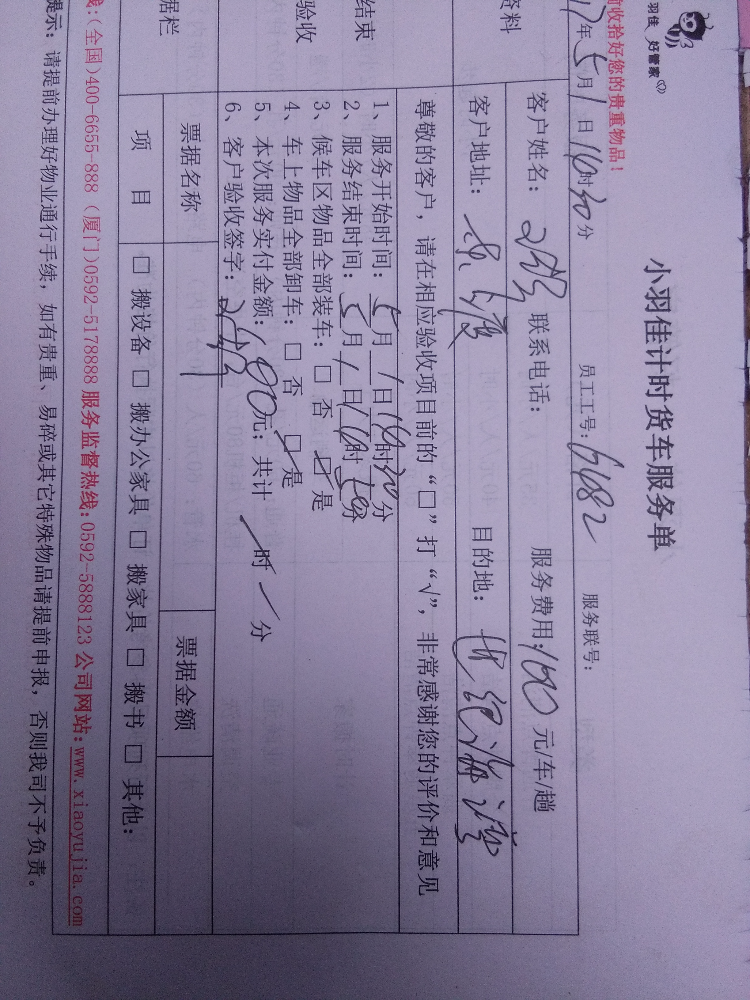 羽佳 好管家
小羽佳计时货车服务单
前收拾好您的贵重物品!
17年5月1日16时30分 员工工号: 6482 服务联号:
资料
客户姓名: 联系电话: 服务费用: 100 元/车/趟
客户地址: 目的地: 世纪海湾
尊敬的客户,请在相应验收项目前的“□”打“√”,非常感谢您的评价和意见
结束
验收
1、服务开始时间: 5月1日16时30分
2、服务结束时间: 5月1日16时50分
3、候车区物品全部装车: □ 否 ☑ 是
4、车上物品全部卸车: □ 否 ☑ 是
5、本次服务实付金额: 100元; 共计 / 时 / 分
6、客户验收签字:
据栏
票据名称 票据金额
项 目 □ 搬设备 □ 搬办公家具 □ 搬家具 □ 搬书 □ 其他:
线:(全国)400-6655-888 (厦门)0592-5178888 服务监督热线:0592-5888123 公司网站:www.xiaoyujia.com
提示: 请提前办理好物业通行手续, 如有贵重、易碎或其它特殊物品请提前申报, 否则我司不予负责。